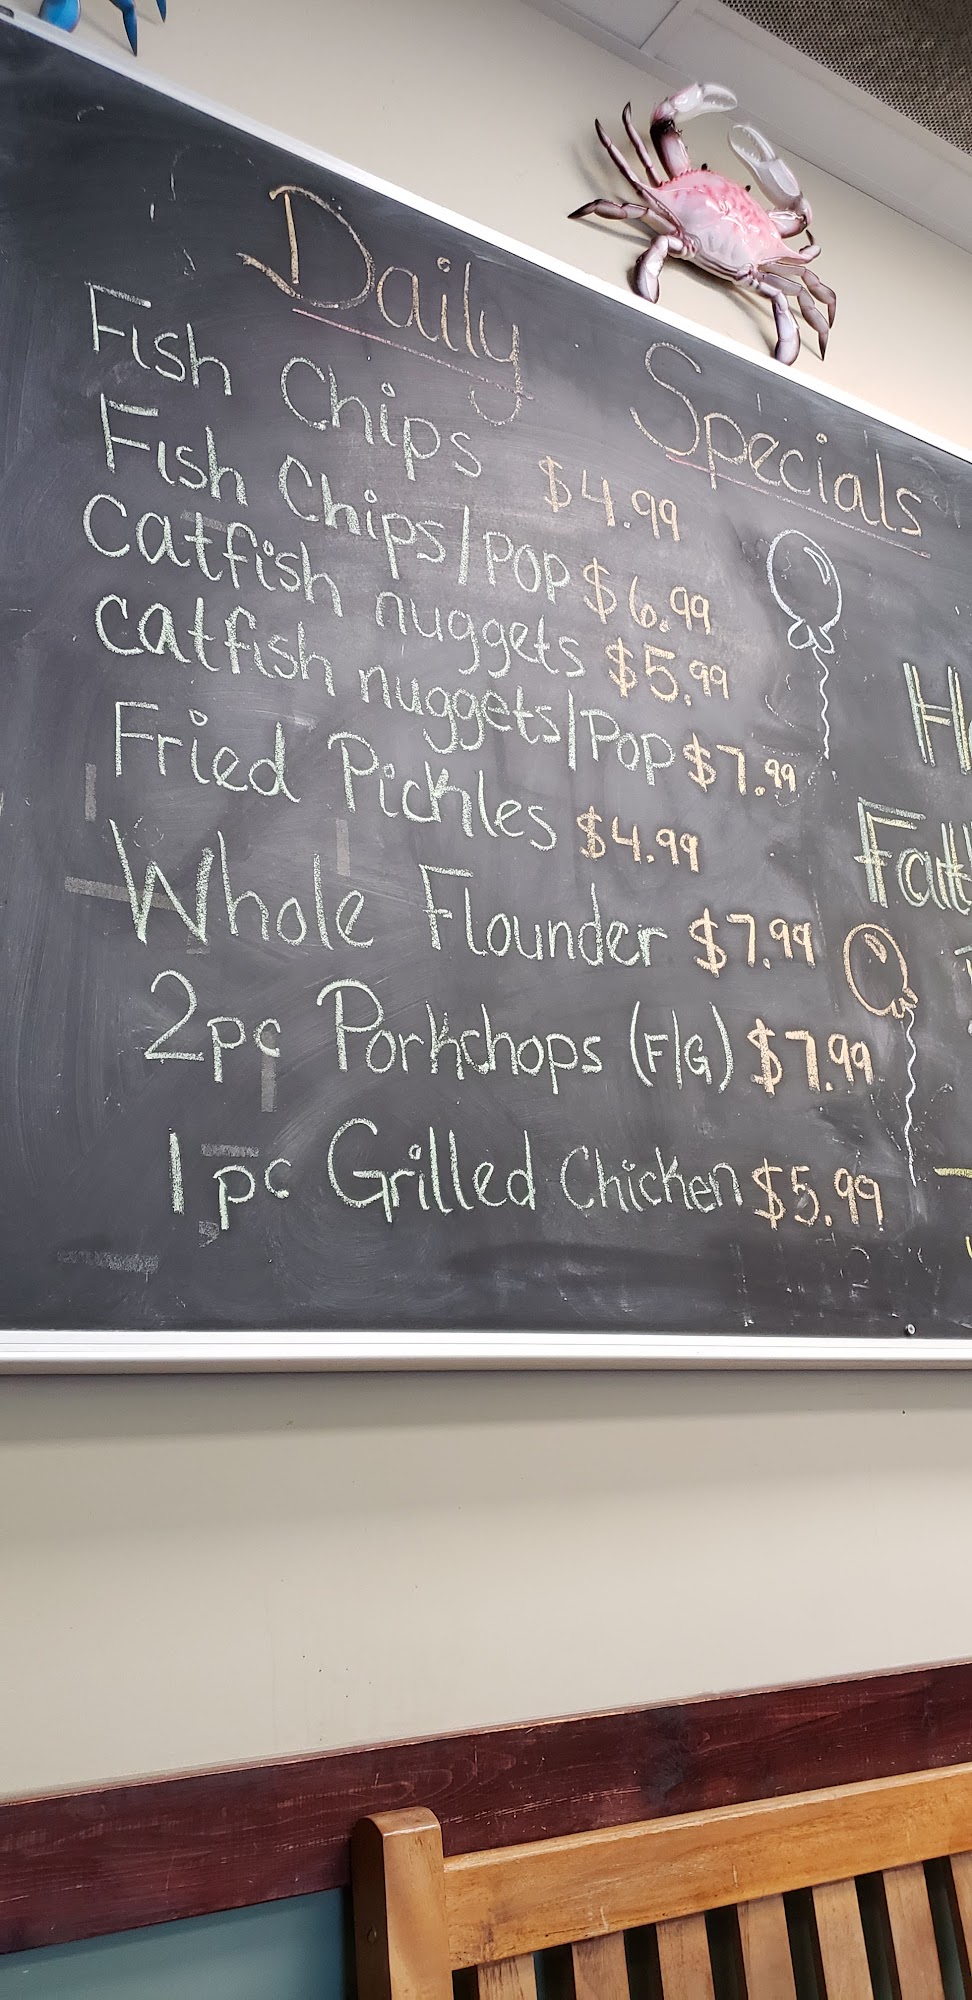 Daily Specials
Fish Chips $4.99
Fish Chips/Pop $6.99
Catfish nuggets $5.99
catfish nuggets/Pop $7.99
Fried Pickles $4.99
Whole Flounder $7.99
2pc Porkchops (F/G) $7.99
1pc Grilled Chicken $5.99